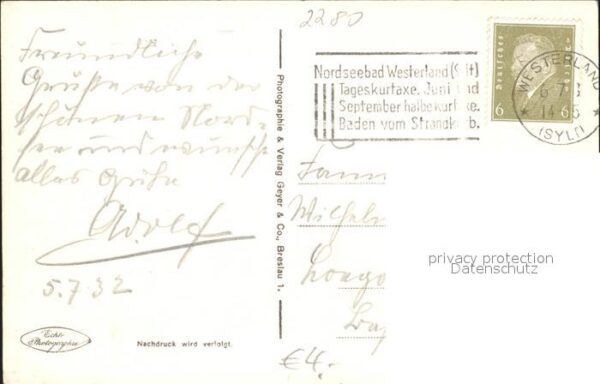 2280
Freundliche
Grüße von der
schönen Nord-
see und wünsche
alles Gute
Adolf
5.7.32
Echte
Photographie
Nachdruck wird verfolgt.
Photographie & Verlag Geyer & Co., Breslau 1.
Nordseebad Westerland (Sylt)
Tageskurtaxe. Juni und
September halbe Kurtaxe.
Baden vom Strandkorb.
Deutsches
6 6
WESTERLAND
(SYLT)
Fam
Wilhelm
privacy protection
Datenschutz
€4.-